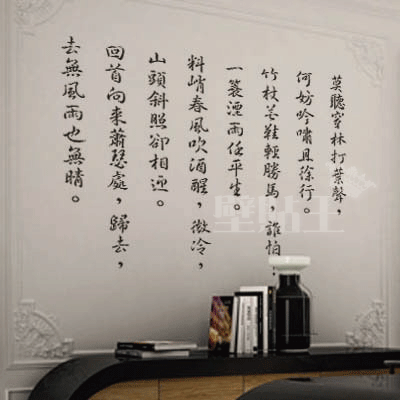 莫聽穿林打葉聲，
何妨吟嘯且徐行。
竹杖芒鞋輕勝馬，誰怕
一簑煙雨任平生。
料峭春風吹酒醒，微冷，
山頭斜照卻相迎。
回首向來蕭瑟處，歸去，
去無風雨也無晴。
壁貼王